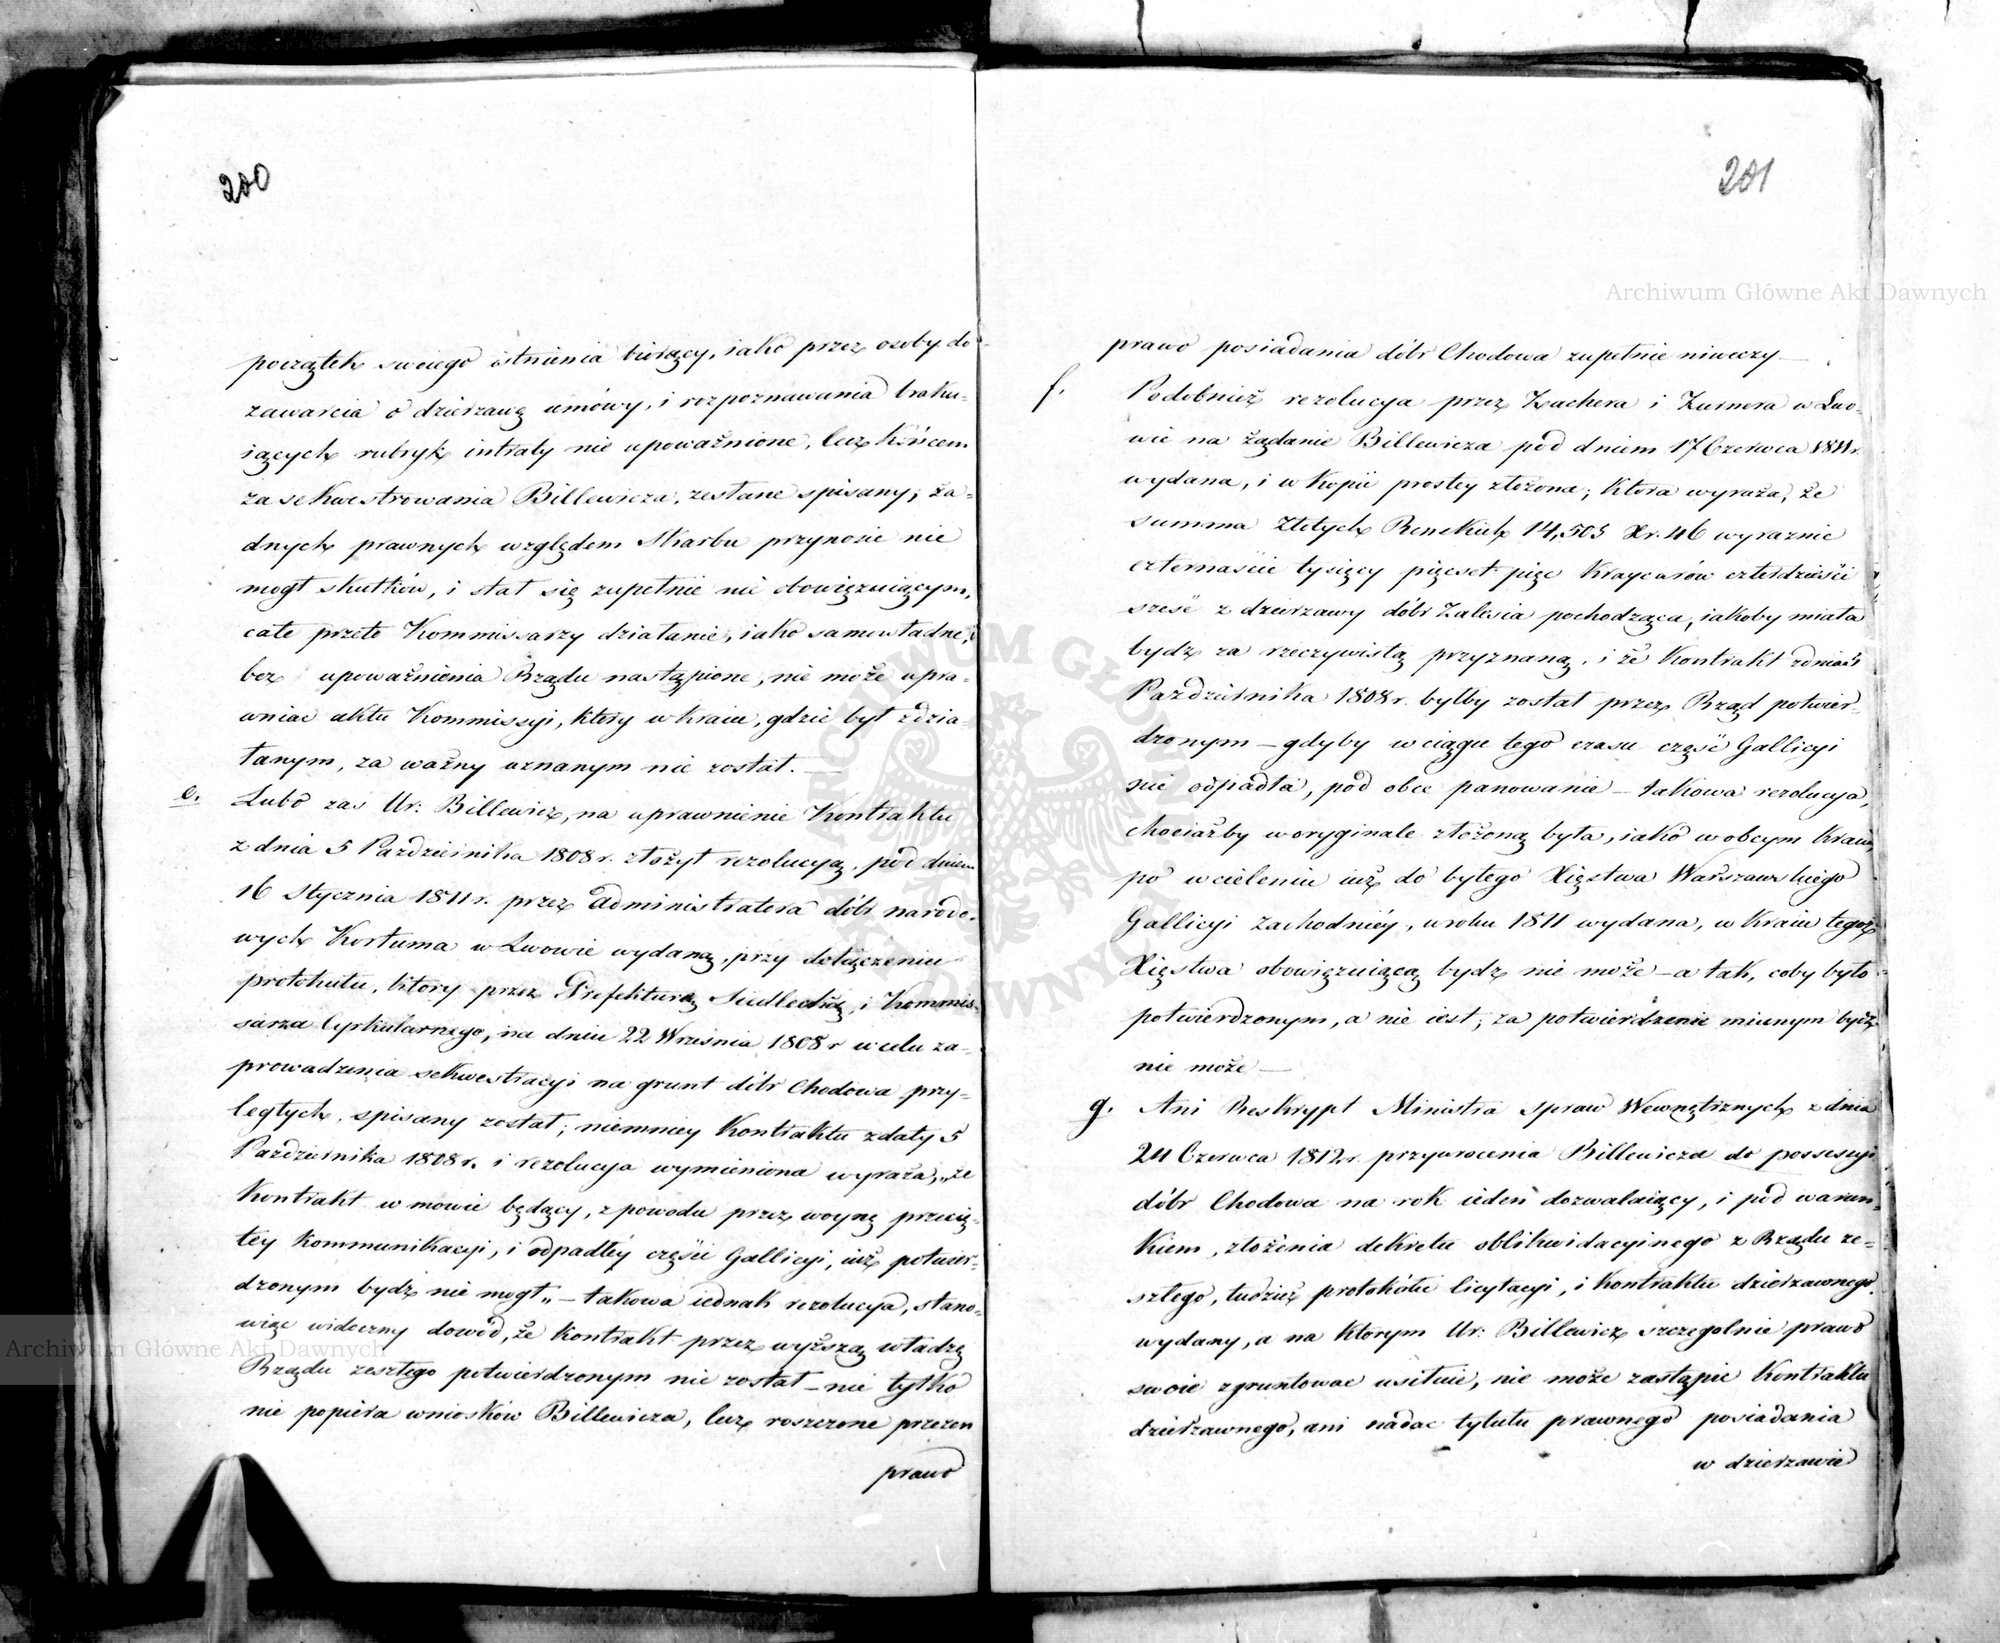 200
początek swoiego istnienia biorący, iako przez osoby do
zawarcia o dzierzawę umowy, i rozpoznawania braku-
iących rubryk intraty nie upoważnione, lecz końcem
zasekwestrowania Billewicza, zestane spisany; ża-
dnych prawnych względem Skarbu przynosić nie
mogł skutków, i stał się zupełnie nie obowięzuiącym,
całe przeto Kommissarzy działanie, iako samowładne, i
bez upoważnienia Rządu nastąpione, nie może upra-
wniac aktu Kommissyi, który w kraiu, gdzie był zdzia-
łanym, za ważny uznanym nie został. —
e. Lubo zas Ur: Billewicz, na uprawnienie Kontraktu
z dnia 5 Pazdziernika 1808 r. złożył rezolucyą, pod dniem
16 Stycznia 1811 r. przez Administratora dóbr narodo-
wych Kortuma w Lwowie wydaną, przy dołączeniu
protokułu, ktory przez Prefekturę Siedlecką, i Kommis-
sarza Cyrkularnego, na dniu 22 Września 1808 r w celu za-
prowadzenia sekwestracyi na grunt dóbr Chodowa przy-
ległych, spisany został; niemniey Kontraktu z daty 5
Pazdziernika 1808 r. i rezolucya wymieniona wyraża, „że
Kontrakt w mowie będący, z powodu przez woynę przecię-
tey kommunikacyi, i odpadłéy części Gallicyi, iuż potwier-
dzonym bydź nie mogł„ — takowa iednak rezolucya, stano-
wiąc widoczny dowód, że Kontrakt przez wyższą władzę
Rządu zeszłego potwierdzonym nie został — nie tylko
nie popiera wniosków Billewicza, lecz roszczone przezeń
prawo
201
prawo posiadania dóbr Chodowa zupełnie niweczy —
f. Podobnież rezolucya przez Zachera i Zurnera w Lwo-
wie na żądanie Billewicza pod dniem 17 Czerwca 1811 r.
wydana, i w kopii prostey złożona; ktora wyraża, że
summa Złotych Renskich 14,505 Xr. 46 wyraznie
czternaście tysięcy pięcset pięc Kraycarów czterdzieści
sześć z dzierzawy dóbr Zalesia pochodząca, iakoby miała
bydź za rzeczywistą przyznaną, i że Kontrakt z dnia 5
Pazdziernika 1808 r. byłby został przez Rząd potwier-
dzonym — gdyby w ciągu tego czasu część Gallicyi
nie odpadła, pod obce panowanie — takowa rezolucya,
chociażby w oryginale złożoną była, iako w obcym kraiu,
po wcieleniu iuż do byłego Xięstwa Warszawskiego
Gallicyi zachodniéy, w roku 1811 wydana, w kraiu tegoż
Xięstwa obowięzuiącą bydź nie może — a tak, coby było
potwierdzonym, a nie iest; za potwierdzenie mianym bydź
nie może —
g. Ani Reskrypt Ministra Spraw Wewnętrznych z dnia
24 Czerwca 1812 r. przywrocenia Billewicza do possessyi
dóbr Chodowa na rok ieden dozwalaiący, i pod warun-
kiem, złożenia dekretu oblikwidacyinego z Rządu ze-
szłego, tudzież protokółu licytacyi, i Kontraktu dzierzawnego
wydany, a na ktorym Ur: Billewicz szczegolnie prawo
swoie zgruntowac usiłuie, nie może zastąpic Kontraktu
dzierzawnego, ani nadac tytułu prawnego posiadania
w dzierzawie
Archiwum Główne Akt Dawnych
Archiwum Główne Akt Dawnych
ARCHIWUM GŁÓWNE AKT DAWNYCH